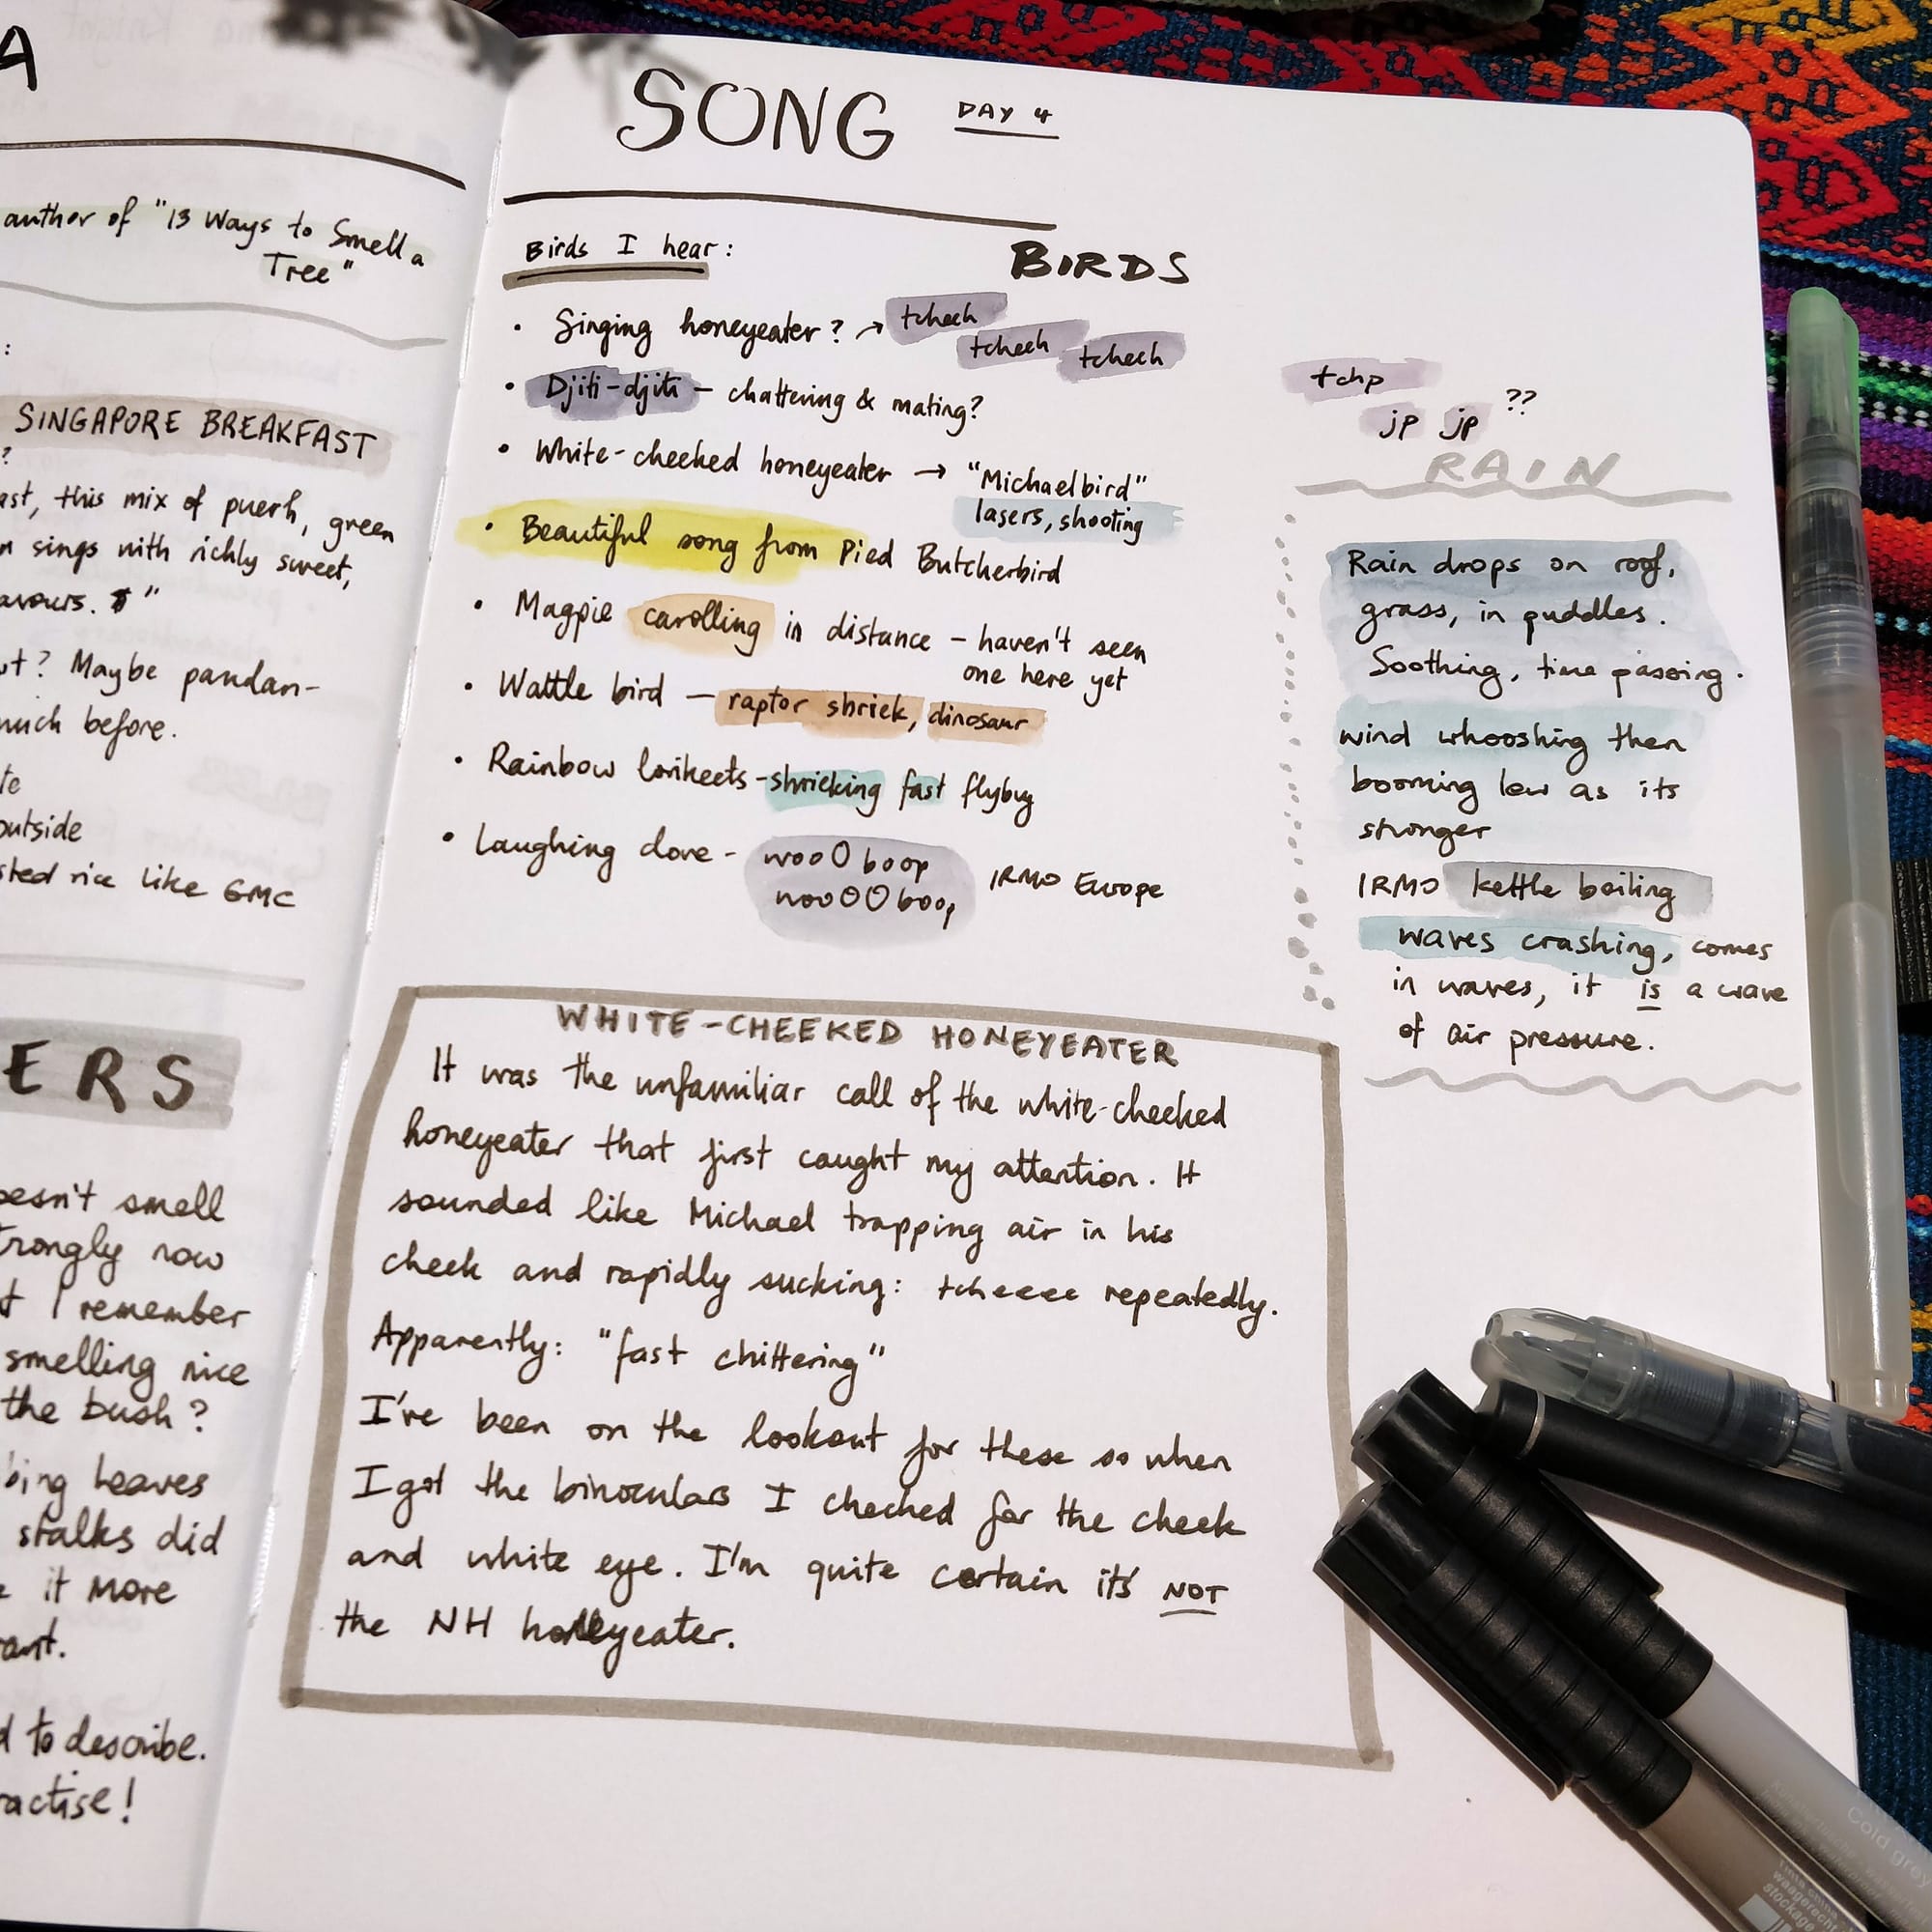 A
author of "13 Ways to Smell a
Tree"
:
SINGAPORE BREAKFAST
?
ast, this mix of puerh, green
n sings with richly sweet,
avours. "
ut? Maybe pandan-
much before.
te
outside
sted rice like GMC
ERS
oesn't smell
trongly now
t I remember
smelling nice
the bush?
bing leaves
stalks did
e it more
ant.
d to describe.
ractise!
SONG DAY 4
Birds I hear:
BIRDS
• Singing honeyeater? → tcheeh
tcheeh tcheeh
• Djiti-djiti - chattering & mating?
• White-cheeked honeyeater → "Michaelbird"
lasers, shooting
• Beautiful song from Pied Butcherbird
• Magpie carolling in distance - haven't seen
one here yet
• Wattle bird - raptor shriek, dinosaur
• Rainbow lorikeets - shrieking fast flybuy
• Laughing dove - wooO boop
wooOO boop
IRMO Europe
tchp
jp jp ??
RAIN
Rain drops on roof,
grass, in puddles.
Soothing, time passing.
wind whooshing then
booming low as its
stronger
IRMO kettle boiling
waves crashing, comes
in waves, it is a wave
of air pressure.
WHITE-CHEEKED HONEYEATER
It was the unfamiliar call of the white-cheeked
honeyeater that first caught my attention. It
sounded like Michael trapping air in his
cheek and rapidly sucking: tcheeee repeatedly.
Apparently: "fast chittering"
I've been on the lookout for these so when
I got the binoculars I checked for the cheek
and white eye. I'm quite certain it's NOT
the NH honeyeater.
Cold grey